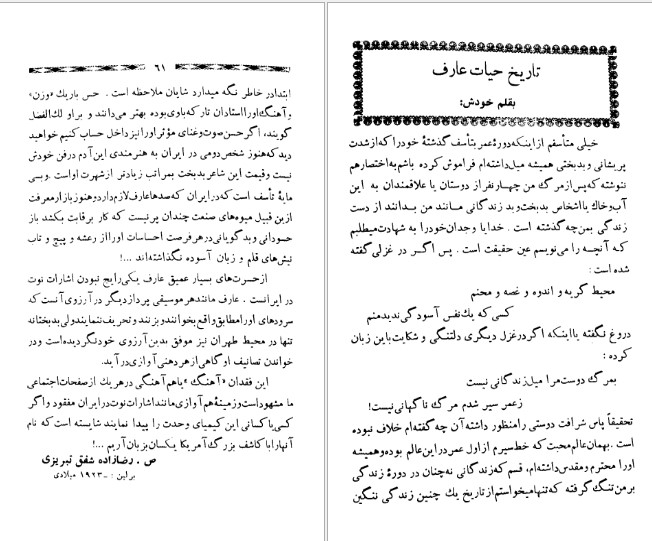 ۶۱
ابتدا در خاطر نگه میدارد شایان ملاحظه است . حس باریك «وزن»
و آهنگ اورا استادان تار که باوی بوده بهتر می‌دانند و براو لك‌الفضل
گویند، اگر حسن صوت وغنای مؤثر اورا نیز داخل حساب کنیم خواهید
دید که هنوز شخص دومی در ایران به هنرمندی این آدم درفن خودش
نیست وقیمت این شاعر بدبخت بمراتب زیادتر از شهرت اواست. وبسی
مایهٔ تأسف است که در ایران که صدها عارف لازم دارد وهنوز باز از معرفت
ازین قبیل میوه‌های صنعت چندان پر نیست که کار برقابت بکشد باز
حسودانی وبدگویانی در هر فرصت احساسات اورا از رعشه و پیچ و تاب
نیش‌های قلم و زبان آسوده نگذاشته‌اند ...!
از حسرت‌های بسیار عمیق عارف یکی رایج نبودن اشارات نوت
در ایرانست . عارف مانند هر موسیقی پرداز دیگر در آرزوی آنست که
سرودهای اورا مطابق واقع بخوانند وبزنند و تحریف ننمایند ولی بدبختانه
تنها در محیط طهران نیز موفق بدین آرزوی خود نگردیده است ودر
خواندن تصانیف او گاهی از هر دهنی آوازی در آید.
این فقدان «آهنگ» یا هم آهنگی در هر یك از صفحات اجتماعی
ما مشهود است وزمینهٔ هم آوازی مانند اشارات نوت در ایران مفقود واگر
کسی یا کسانی این کیمیای وحدت را پیدا نمایند شایسته است که نام
آنهارا با کاشف بزرگ آمریکا یکسان بزبان آریم ...!
ص . رضازاده شفق تبریزی
برلین : ۱۹۲۳ میلادی
تاریخ حیات عارف
بقلم خودش:
خیلی متأسفم از اینکه دورهٔ عمر بتأسف گذشتهٔ خودرا که از شدت
پریشانی و بدبختی همیشه میل داشته‌ام فراموش کرده باشم به اختصار هم
ننوشته که پس از مرگ من چهار نفر از دوستان یا علاقمندان به این
آب وخاك با اشخاص بدبخت وبد زندگانی مانند من بدانند از دست
زندگی بمن چه گذشته است . خدایا وجدان خودرا به شهادت میطلبم
که آنچه را می‌نویسم عین حقیقت است . پس اگر در غزلی گفته
شده است :
محیط گریه و اندوه و غصه و محنم
کسی که یك نفس آسودگی ندید منم
دروغ نگفته یا اینکه اگر در غزل دیگری دلتنگی و شکایت باین زبان
کرده :
بمرگ دوست مرا میل زندگانی نیست
زعمر سیر شدم مرگ ناگهانی نیست!
تحقیقاً پاس شرافت دوستی را منظور داشته آن چه گفته‌ام خلاف نبوده
است . بهمان عالم محبت که خط سیرم از اول عمر در این عالم بوده وهمیشه
اورا محترم ومقدس داشته‌ام، قسم که زندگانی نه چنان در دورهٔ زندگی
برمن تنگ گرفته که تنها میخواستم از تاریخ یك چنین زندگی ننگین